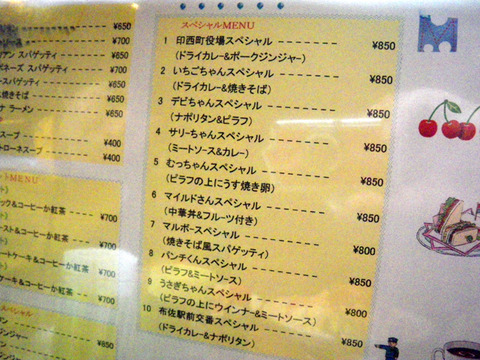 スペシャルMENU
1 印西町役場スペシャル ¥850
(ドライカレー&ポークジンジャー)
2 いちごちゃんスペシャル ¥850
(ドライカレー&焼きそば)
3 デビちゃんスペシャル ¥850
(ナポリタン&ピラフ)
4 サリーちゃんスペシャル ¥850
(ミートソース&カレー)
5 むっちゃんスペシャル ¥850
(ピラフの上にうす焼き卵)
6 マイルドさんスペシャル ¥850
(中華丼&フルーツ付き)
7 マルボースペシャル ¥800
(焼きそば風スパゲッティ)
8 パンチくんスペシャル ¥850
(ピラフ&ミートソース)
9 うさぎちゃんスペシャル ¥800
(ピラフの上にウインナー&ミートソース)
10 布佐駅前交番スペシャル ¥850
(ドライカレー&ナポリタン)
¥650
ース ¥700
アン スパゲッティ ¥650
ネーズ スパゲティ ¥700
ースパゲッティ ¥650
焼きそば ¥650
ナ ラーメン ¥650
スープ ¥400
トローネスープ ¥400
MENU
ック&コーヒーか紅茶 ¥700
ースト&コーヒーか紅茶 ¥700
ートケーキ&コーヒーか紅茶 ¥700
ケーキ&コーヒーか紅茶 ¥700
スペシャル